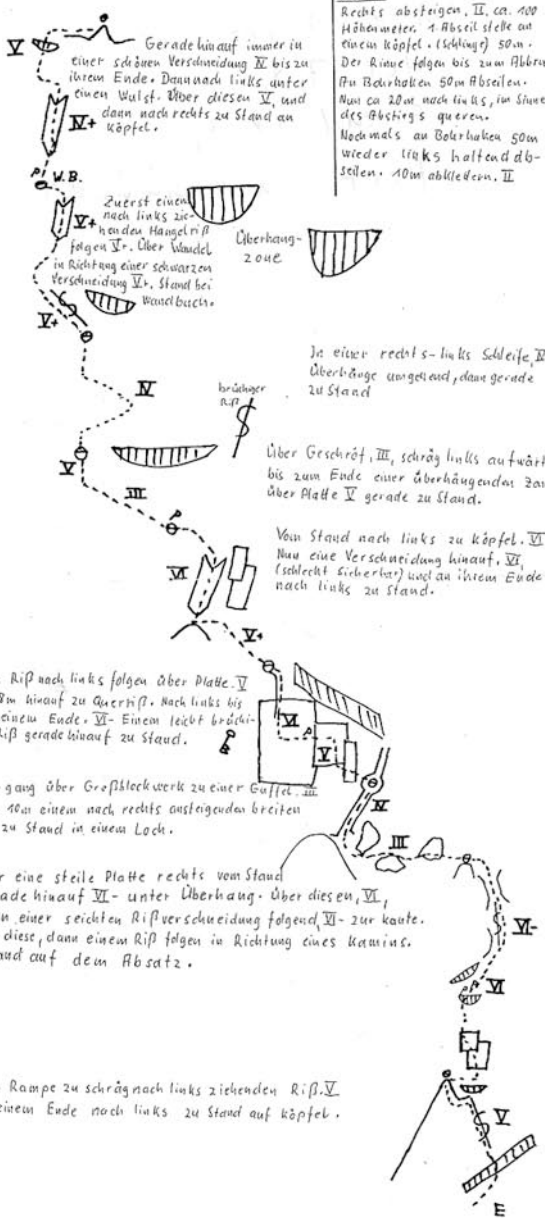 Rechts absteigen, II, ca. 100
Höhenmeter. 1 Abseilstelle an
einem Köpfel. (Schlinge) 50m.
Der Rinne folgen bis zum Abbru
An Bohrhaken 50m Abseilen.
Nun ca 20m nach links, im Sinne
des Abstiegs queren.
Nochmals an Bohrhaken 50m
wieder links haltend ab-
seilen. 10m abklettern. II
V
Gerade hinauf immer in
einer schönen Verschneidung IV bis zu
ihrem Ende. Dann nach links unter
einen Wulst. Über diesen V, und
dann nach rechts zu Stand an
Köpfel.
IV+
P
W.B.
Zuerst einen
nach links zie-
henden Hangelriß
folgen V+. Über Wandel
in Richtung einer schwarzen
Verschneidung V+. Stand bei
Wandbuch.
V+
Überhang-
zone
V+
In einer rechts-links Schleife, IV
Überhänge umgehend, dann gerade
zu Stand
IV
brüchiger
Riß
V
Über Geschröf, III, schräg links aufwärt
bis zum Ende einer überhängenden Zon
über Platte V gerade zu Stand.
III
P
Vom Stand nach links zu Köpfel. VI
Nun eine Verschneidung hinauf. VI,
(schlecht sicherbar) und an ihrem Ende
nach links zu Stand.
VI
V+
Riß nach links folgen über Platte. V
8m hinauf zu Querriß. Nach links bis
einem Ende. VI- Einem leicht brüchi-
iß gerade hinauf zu Stand.
VI
P
V
gang über Großblockwerk zu einer Guffel. III
10m einem nach rechts ansteigenden breiten
zu Stand in einem Loch.
IV
III
r eine steile Platte rechts vom Stand
ade hinauf VI- unter Überhang. Über diesen, VI,
n einer seichten Rißverschneidung folgend, VI- zur Kante.
diese, dann einem Riß folgen in Richtung eines Kamins.
and auf dem Absatz.
VI-
VI
P
P
Rampe zu schräg nach links ziehenden Riß. V
einem Ende nach links zu Stand auf Köpfel.
V
E